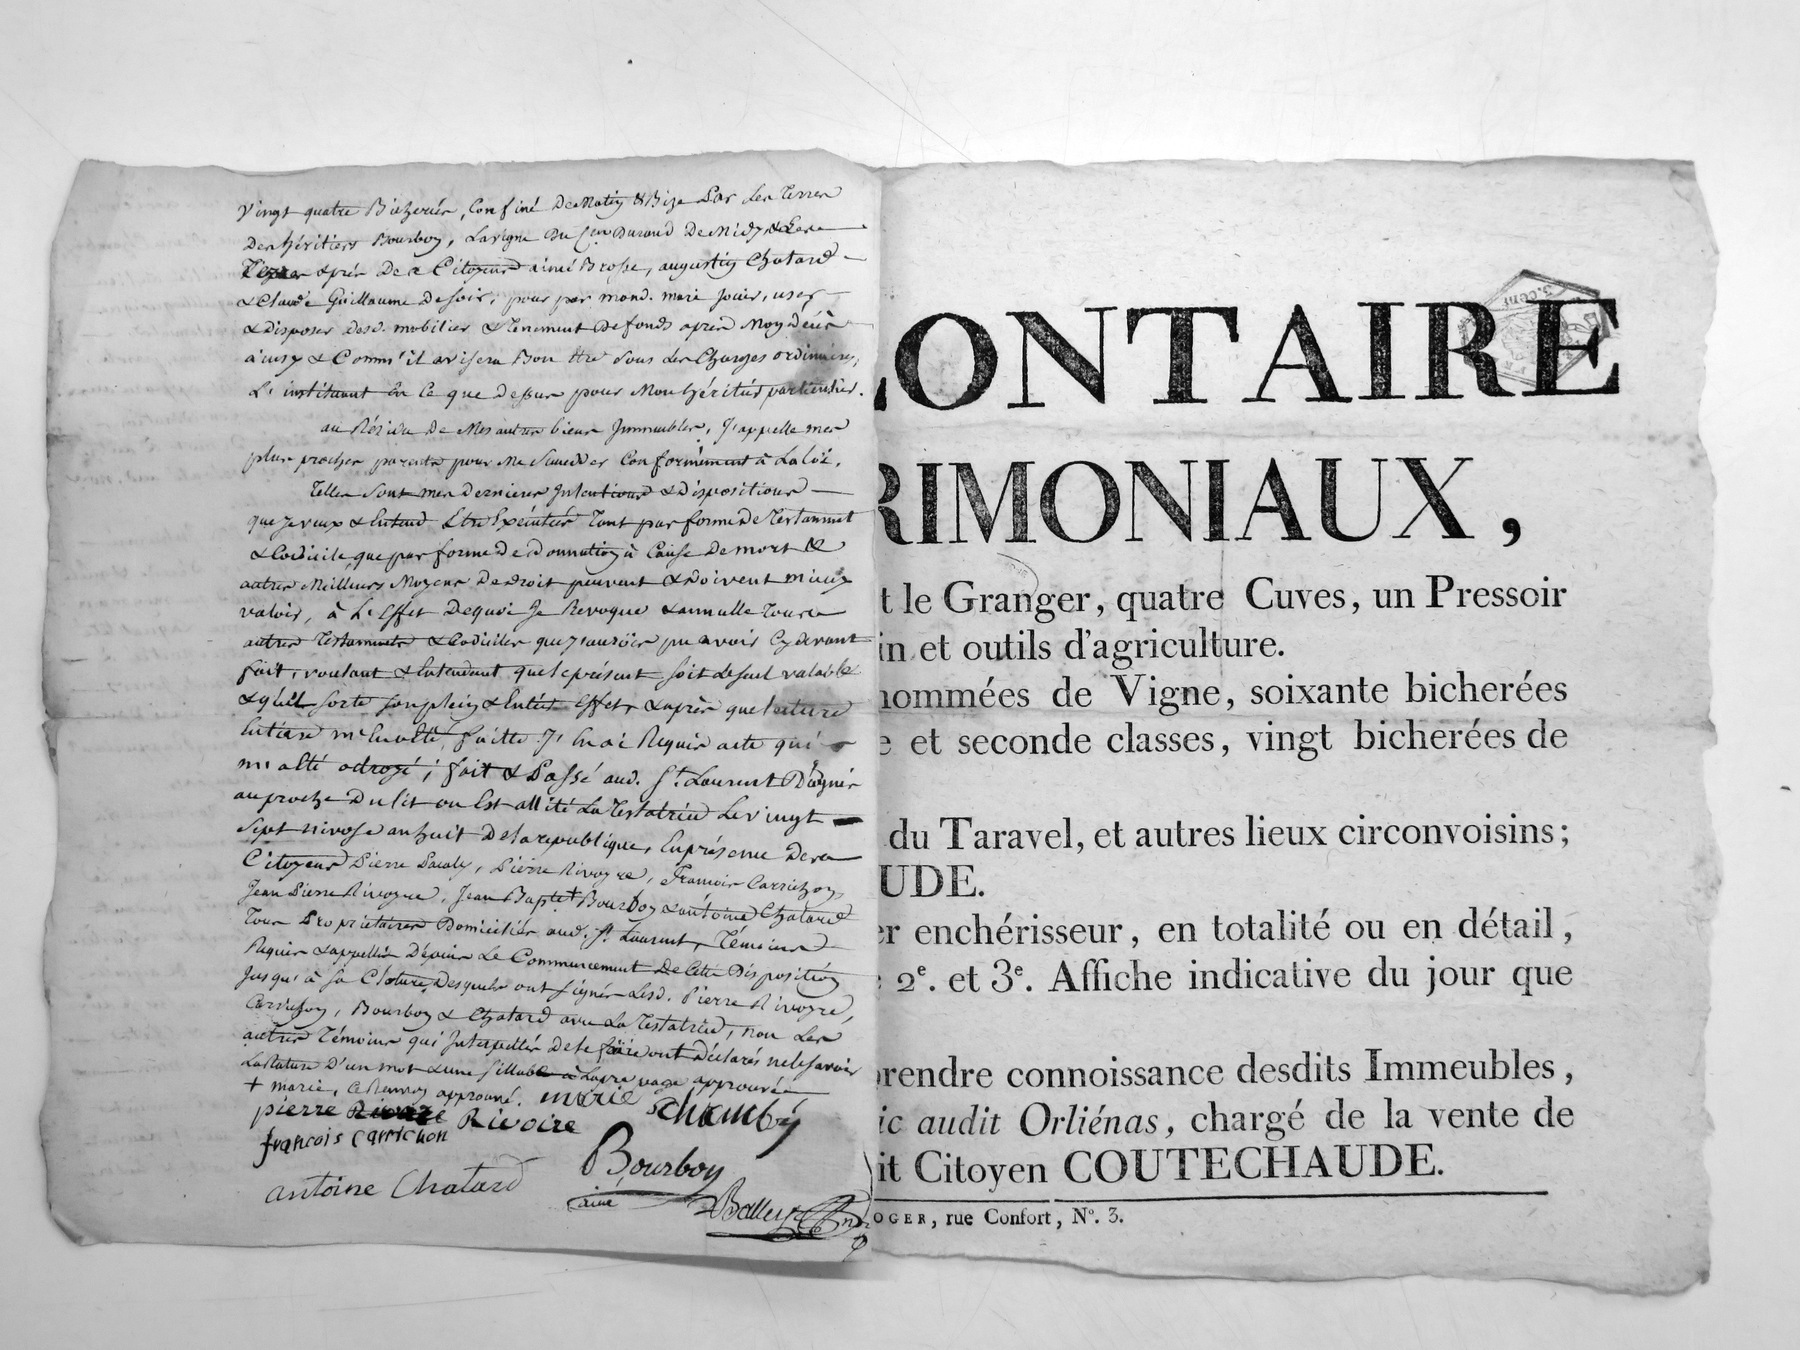 Vingt quatre Bicherées, Confiné De Matin & Bize Par les Terres
Des héritiers Bourbon, La vigne Du Cen Durand De Midy &
& prés Des Citoyens aimé Brosse, augustin Chatard
& Claude Guillaume De soir, pour par mond. mari jouir, user
& disposer desd. mobilier & Tenement De fonds après Moy décès
ainsy & Comm'il avisera Bon Etre sous Les Charges ordinaires,
L'instituant En Ce que Dessus pour Mon héritier particulier.
au Résidu De Mes autres biens Immeubles, J'appelle mes
plus proches parents pour Me Succeder Conformément à La loi.
Telles sont mes dernieres Intentions & Dispositions
que je veux & Entend Etre Exécutées Tant par forme De Testament
& Codicile, que par forme De Donnation à Cause De mort &
autres Meilleurs Moyens De droit peuvent & doivent mieux
valoir, à L'Effet Dequoi Je Revoque & annulle Tous
autres Testaments & Codiciles que j'aurois pu avoir Cy devant
fait, voulant & Entendant que le présent soit le seul valable
& qu'il sorte son plein & Entier Effet, & après que lecture
Entiere m'En a Eté faitte J'En ai Requis acte qui
m'a Eté octroyé; fait & Passé aud. St. Laurent D'agnis
au proche Du lit ou Est allité La Testatrice Le vingt
Sept nivose an huit De la république, En présence Des
Citoyens Pierre Pierre Rivoyre, François Carrichon,
Jean Pierre Rivoyre, Jean Bapte Bourbon & antoine Chatard
Tous Proprietaires Domiciliés aud. St. Laurent, Témoins
Requis & appellés Dépuis Le Commencement De Cette Disposition
Jusqu'à sa Cloture, Desquels ont signés Lesd. Pierre Rivoyre,
Carrichon, Bourbon & Chatard avec La Testatrice, non Les
autres Témoins qui Interpellés De le faire ont Déclarés ne le savoir
La Rature D'un mot & une sillabe à La pre. page approuvée
+ marie, Ce Renvoy approuvé. marie chambé
pierre Rivoire
françois carrichon
Bourbon
antoine Chatard
aimé
LONTAIRE
3. cent
RIMONIAUX,
t le Granger, quatre Cuves, un Pressoir
in et outils d'agriculture.
nommées de Vigne, soixante bicherées
e et seconde classes, vingt bicherées de
du Taravel, et autres lieux circonvoisins;
UDE.
er enchérisseur, en totalité ou en détail,
2e. et 3e. Affiche indicative du jour que
prendre connoissance desdits Immeubles,
ic audit Orliénas, chargé de la vente de
it Citoyen COUTECHAUDE.
OGER, rue Confort, No. 3.